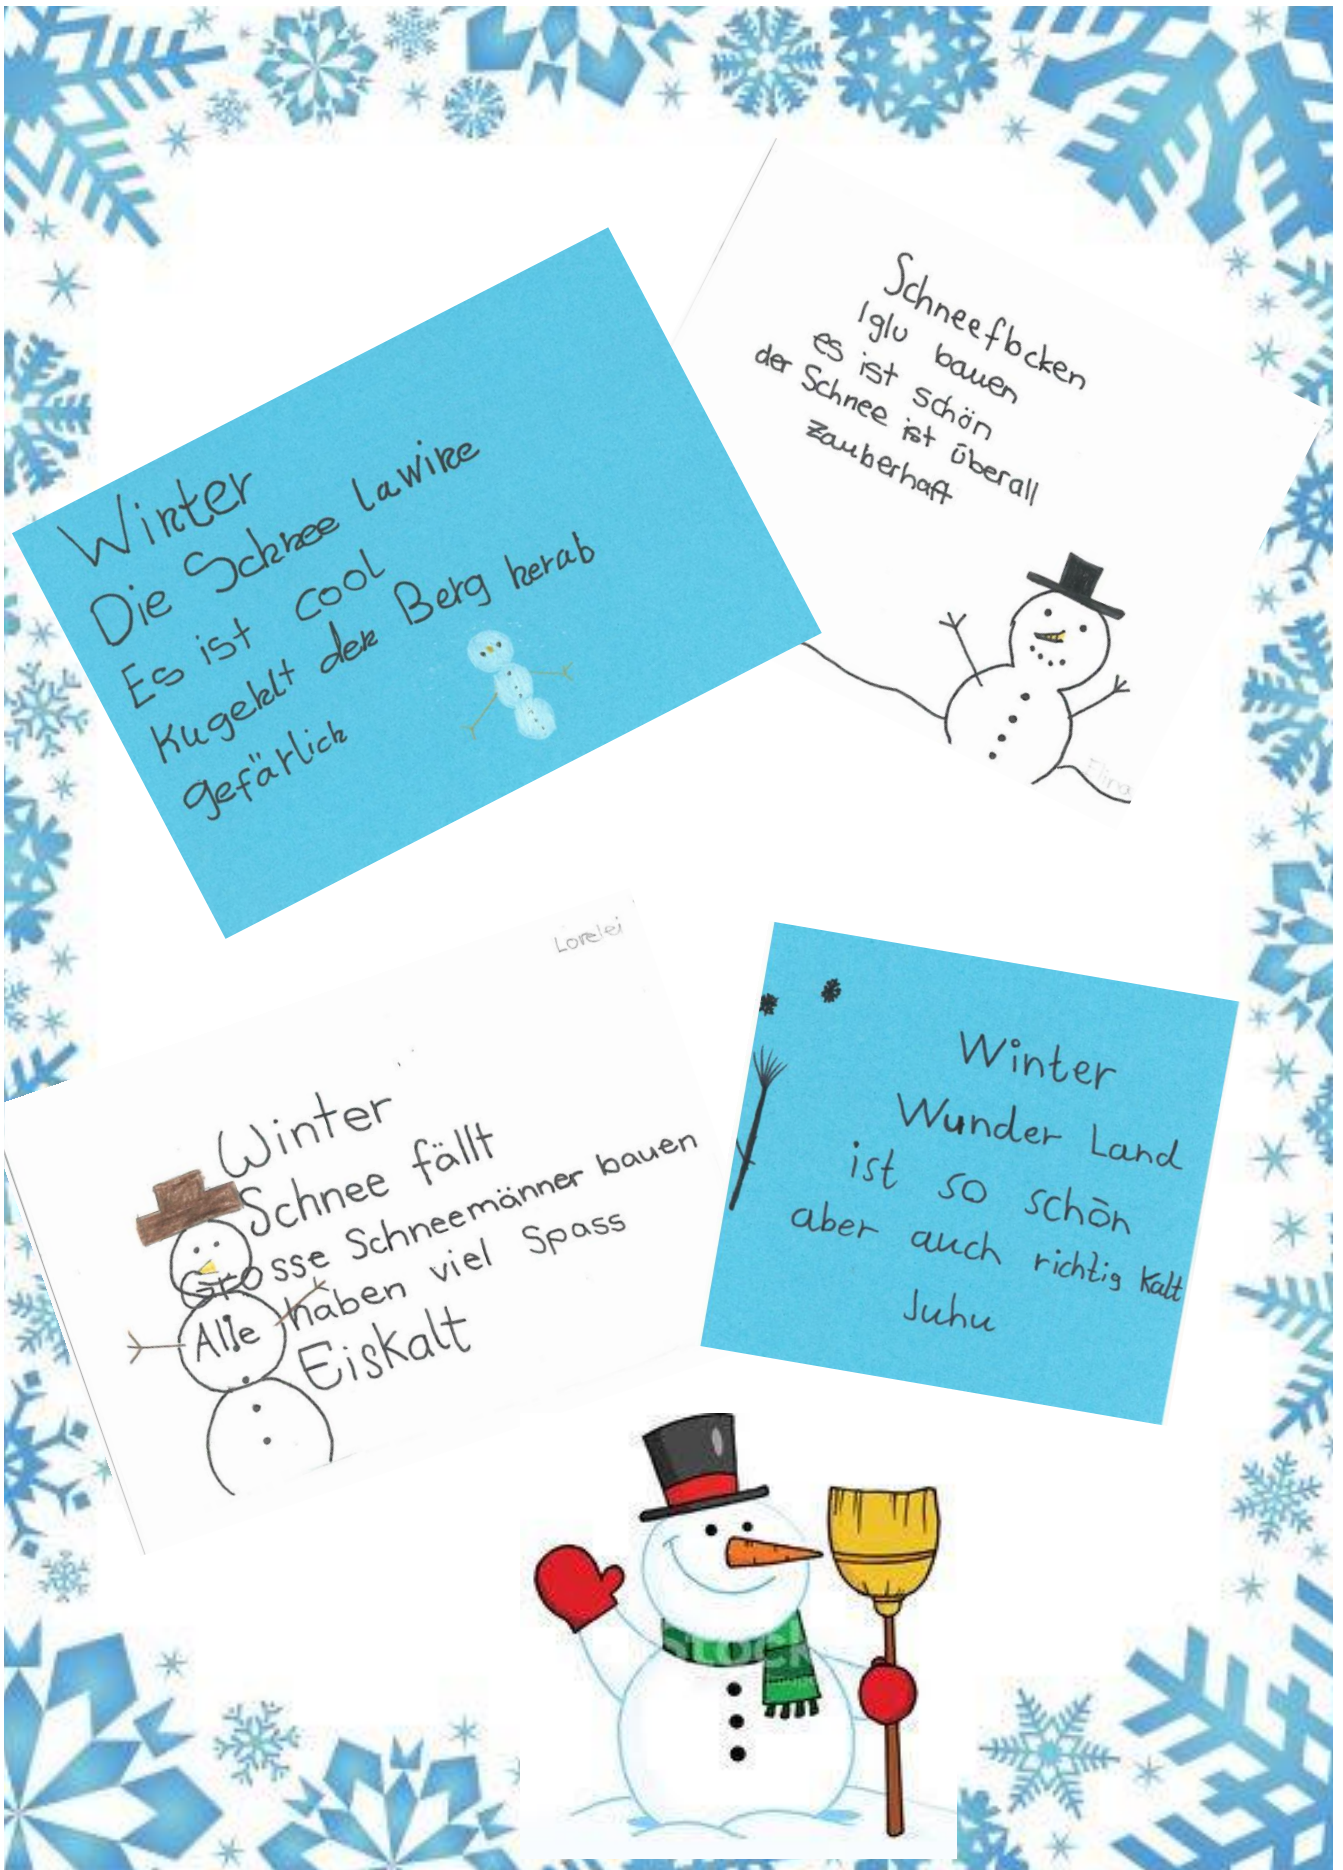 Winter
Die Schnee lawine
Es ist cool
Kugeklt den Berg herab
gefärlich
Schneeflocken
Iglu bauen
es ist schön
der Schnee ist überall
Zauberhaft
Elina
Lorelei
Winter
Schnee fällt
Grosse Schneemänner bauen
Alle haben viel Spass
Eiskalt
Winter
Wunder Land
ist so schön
aber auch richtig Kalt
Juhu